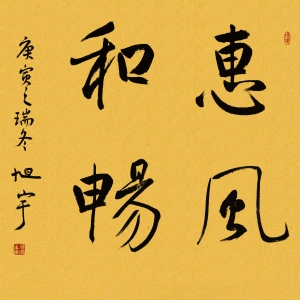 惠風
和暢
庚寅之瑞冬 旭宇